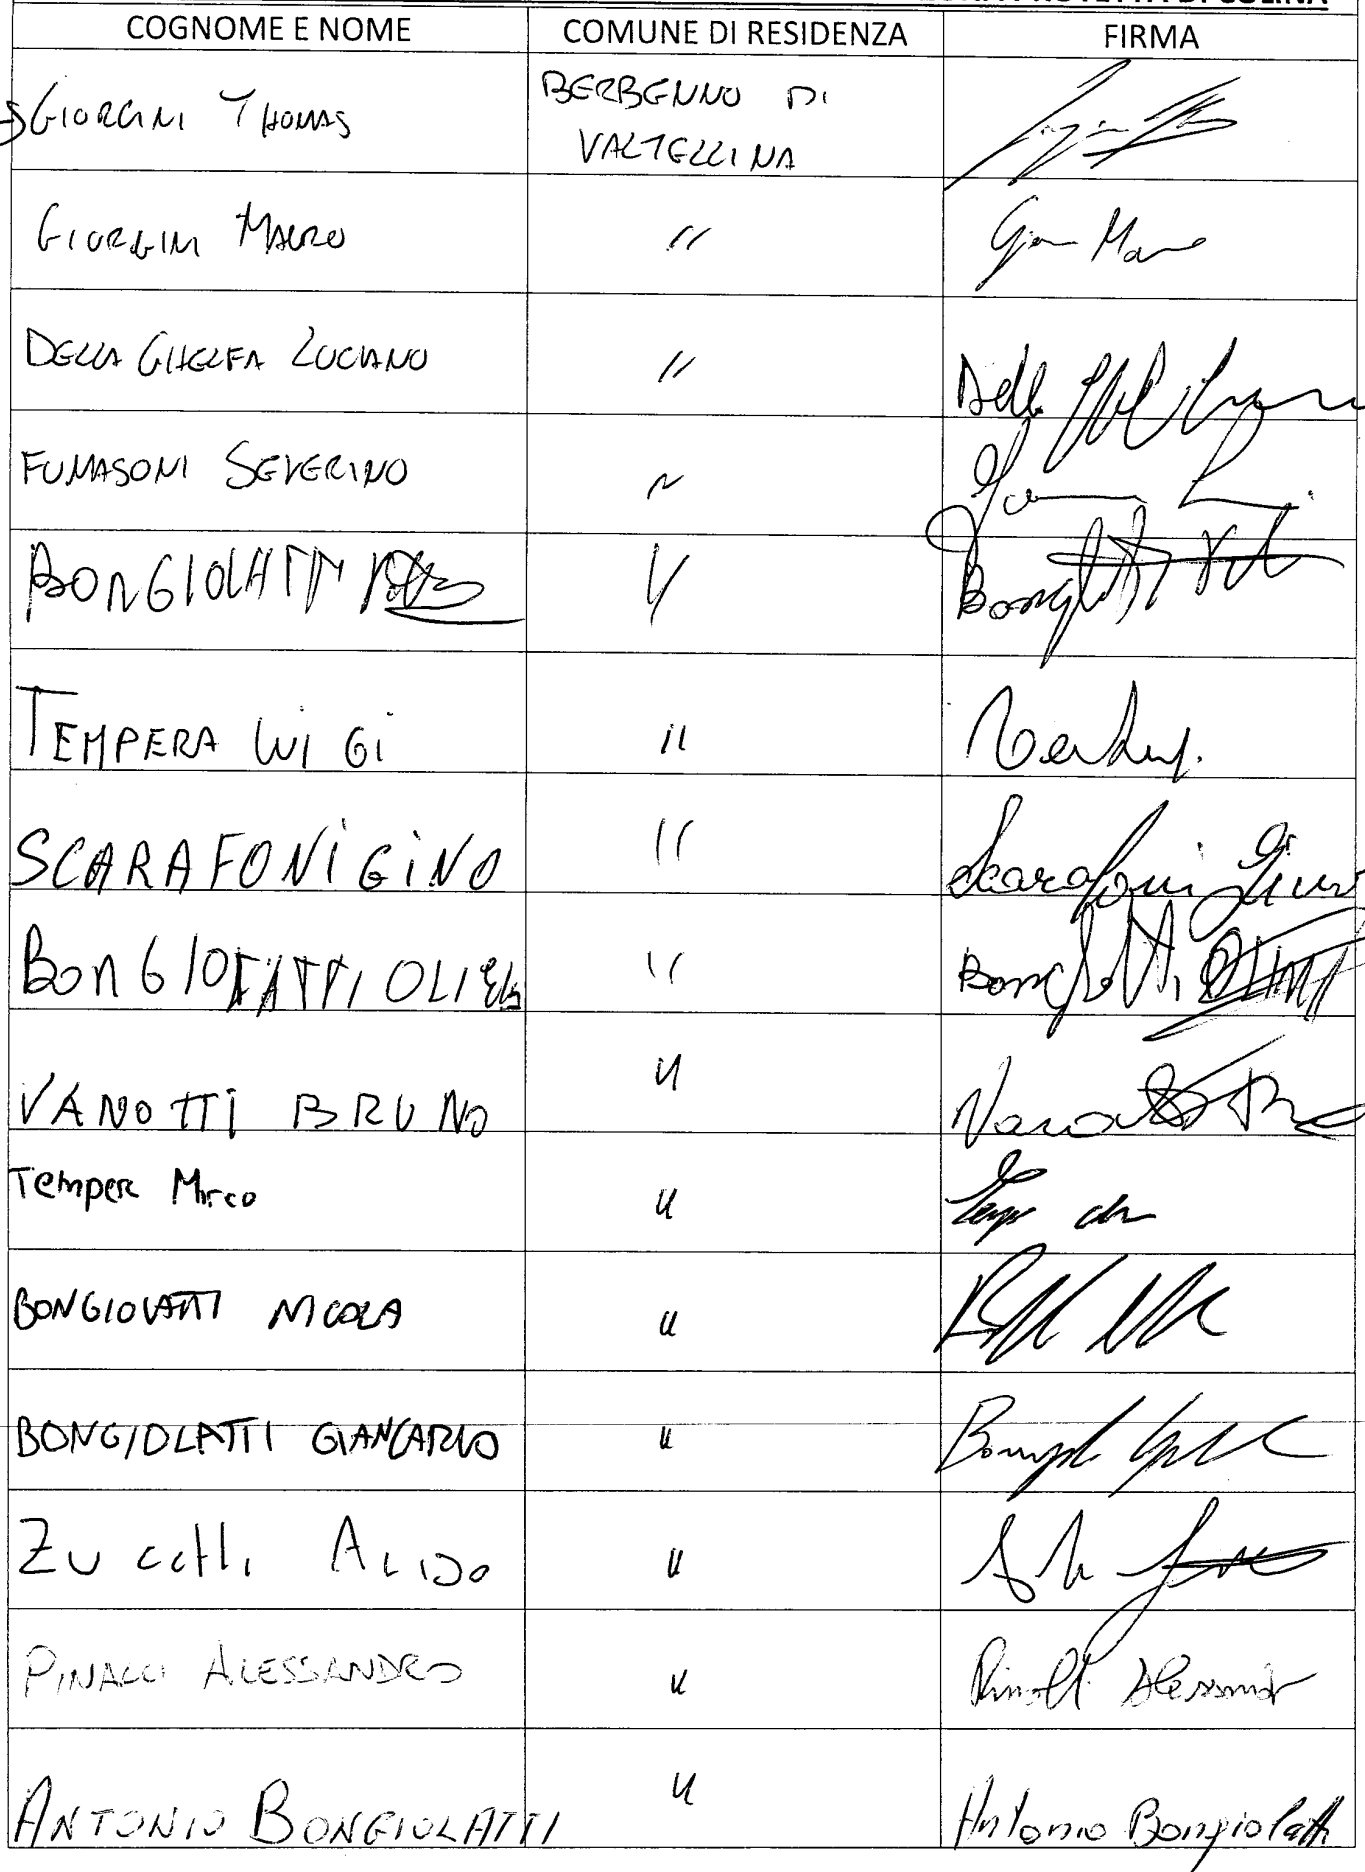 PROTETTA DI COLINA
COGNOME E NOME COMUNE DI RESIDENZA FIRMA
GIORGINI THOMAS BERBENNO DI
VALTELLINA
GIORGINI MAURO "
DELLA GHELFA LUCIANO " Della
FUMASONI SEVERINO "
BONGIOLATTI "
TEMPERA LUIGI "
SCARAFONI GINO " Scarafoni Gino
BONGIOLATTI "
VANOTTI BRUNO "
Tempera Mirco "
BONGIOLATTI NICOLA "
BONGIOLATTI GIANCARLO "
Zuccelli "
PINALLI ALESSANDRO " Pinalli Alessandro
ANTONIO BONGIOLATTI " Antonio Bongiolatti